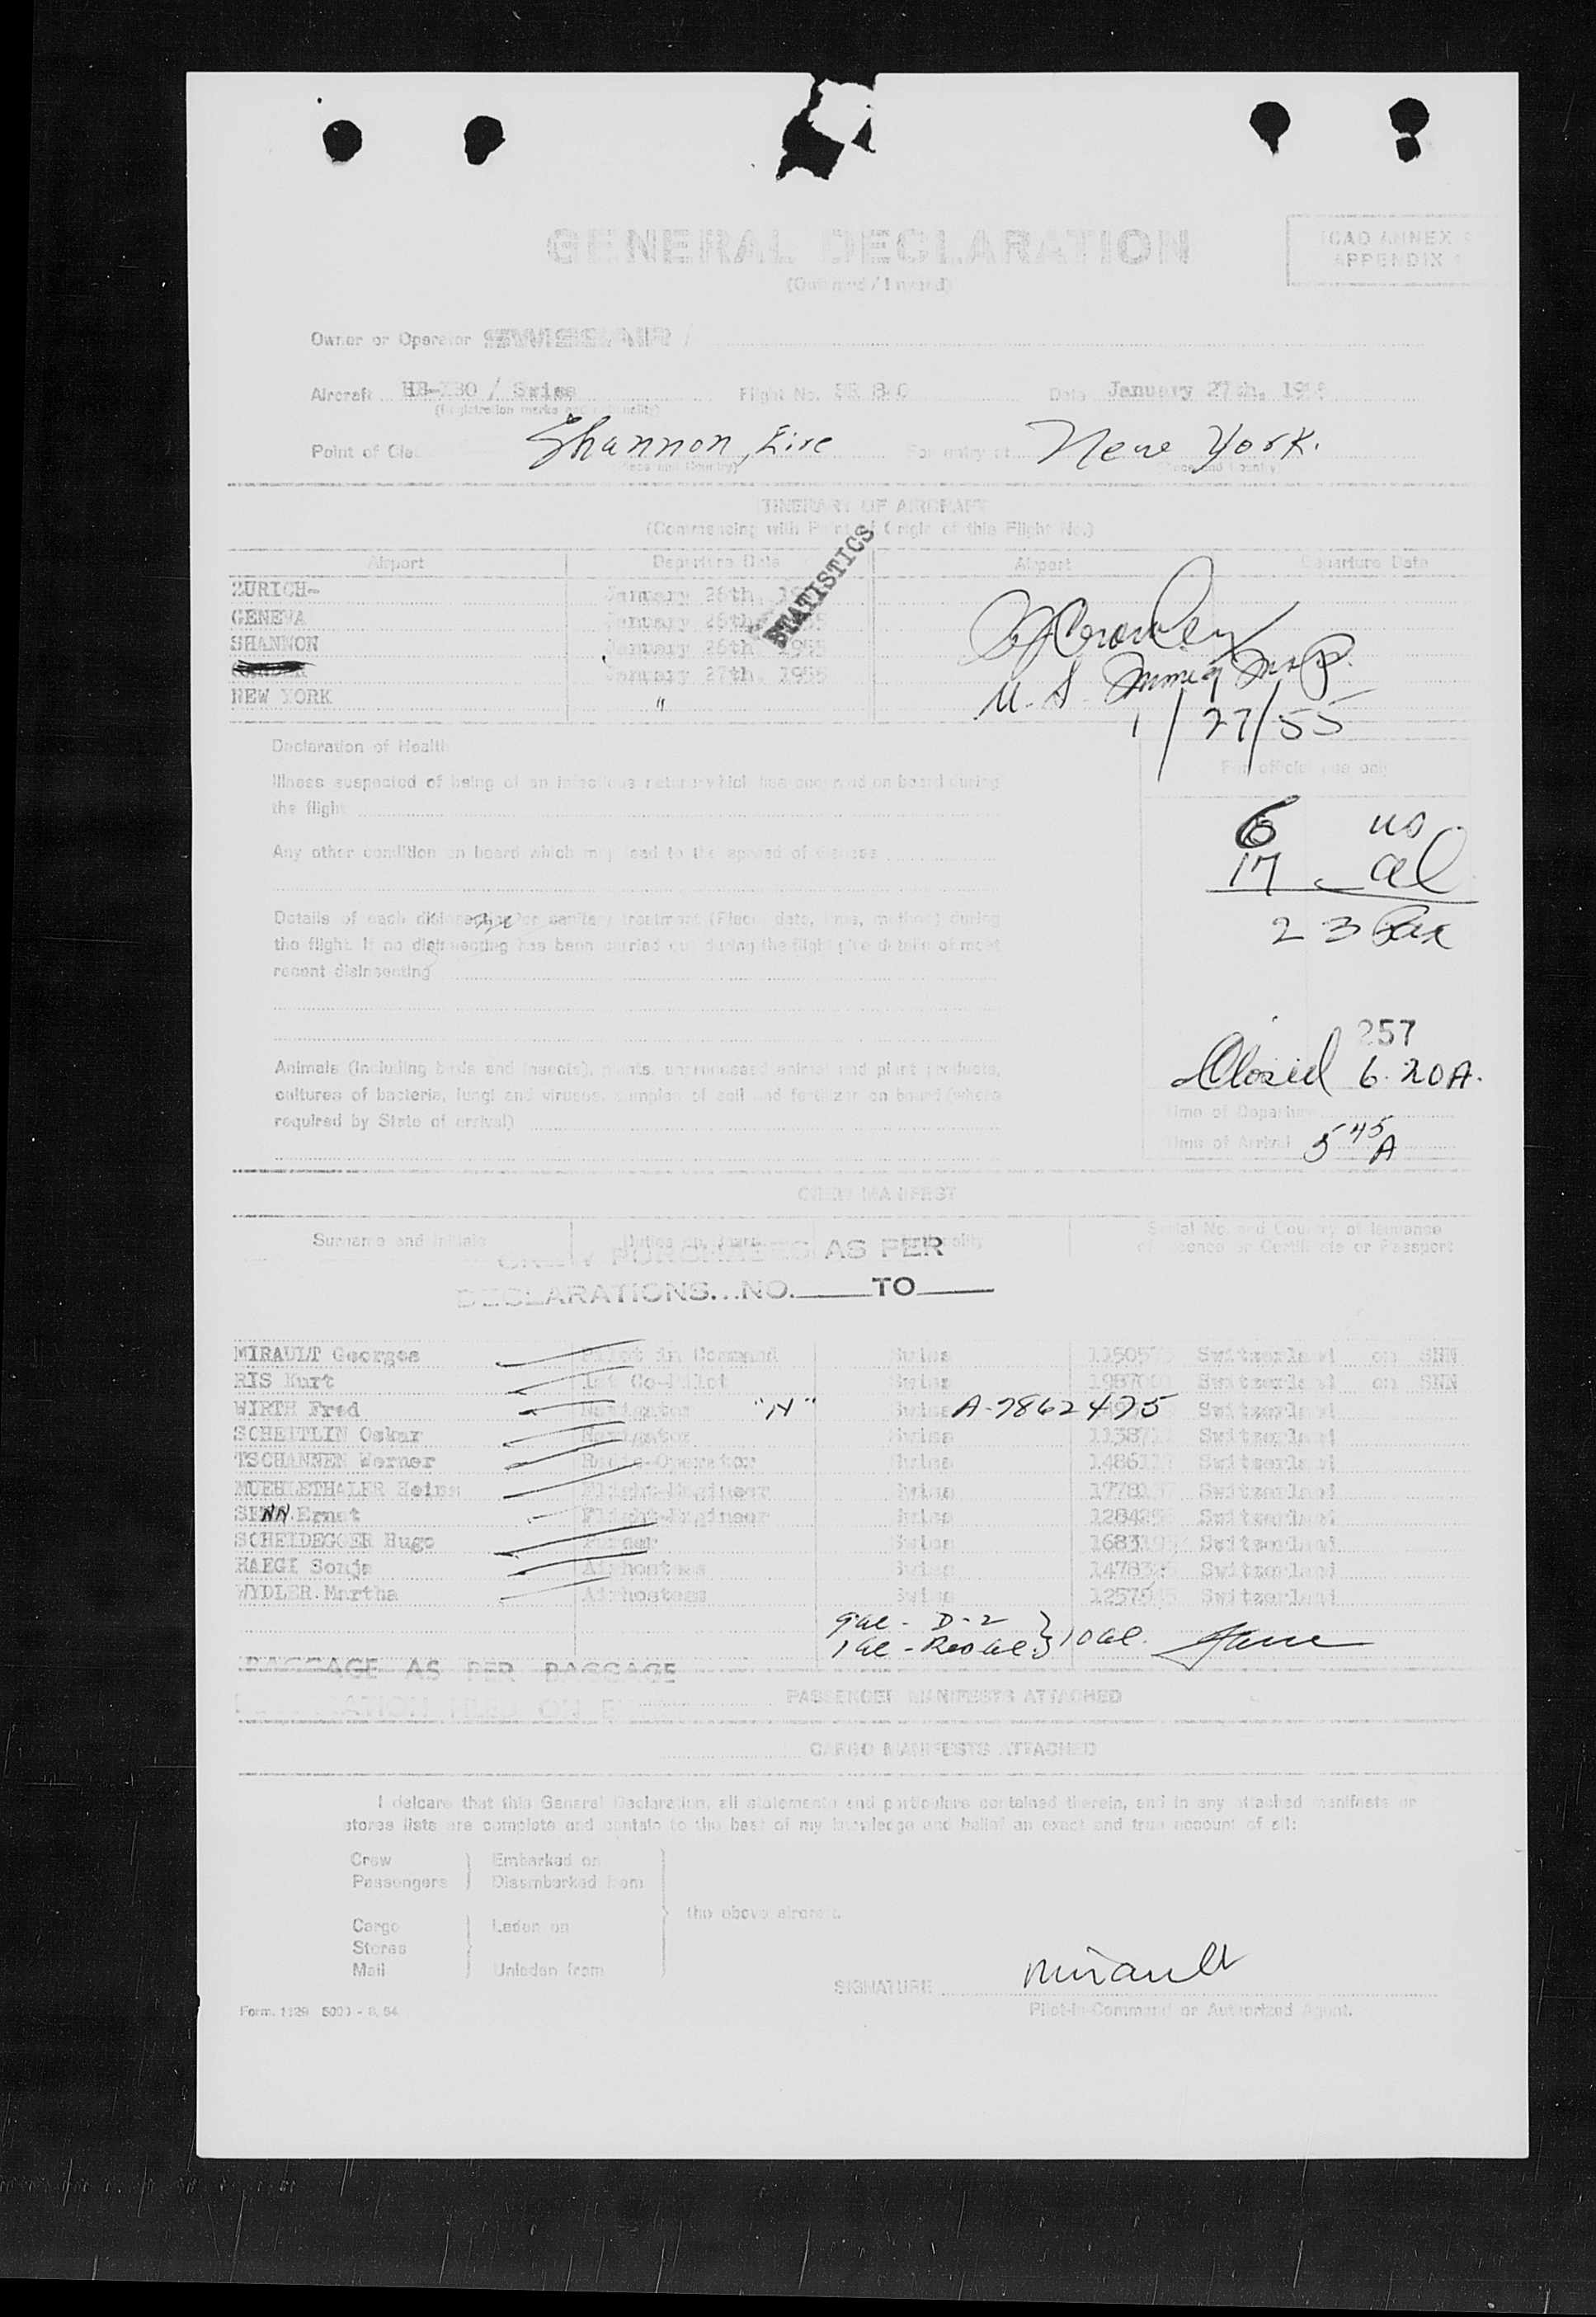 GENERAL DECLARATION
ICAO ANNEX
APPENDIX
(Outward / Inward)
Owner or Operator SWISSAIR /
Aircraft / Swiss Flight No. SR Date January 27th,
(Registration marks and nationality)
Point of Shannon, Eire For entry at New York.
(Place and Country) (Place and Country)
ITINERARY OF AIRCRAFT
(Commencing with Point of Origin of this Flight No.)
Airport Departure Date Airport Departure Date
STATISTICS
ZURICH- January 26th,
GENEVA January 26th,
SHANNON January 26th 1955
January 27th, 1955
NEW YORK "
Crowley
U.S. Immig Insp.
1/27/55
Declaration of Health
For official use only
Illness suspected of being of an infectious nature which has occurred on board during
the flight
6 US
17 al
23 Pax
Any other condition on board which may lead to the spread of disease
Details of each disinsecting or sanitary treatment (Place, date, time, method) during
the flight. If no disinsecting has been carried out during the flight give details of most
recent disinsecting
257
Closed 6.20A.
Animals (including birds and insects), plants, unprocessed animal and plant products,
cultures of bacteria, fungi and viruses, samples of soil and fertilizer on board (where
required by State of arrival)
Time of Departure
Time of Arrival 5 45 A
CREW MANIFEST
Surname and Initials Duties on Board Nationality Serial No. and Country of Issuance
of Licence or Certificate or Passport
CREW PURCHASES AS PER
DECLARATIONS...NO. TO
MIRAULT Georges Pilot in Command Swiss Switzerland on SNN
RIS Kurt 1st Co-Pilot Swiss Switzerland on SNN
WIRTH Fred Navigator "N" Swiss A-7862475 Switzerland
SCHEITLIN Oskar Navigator Swiss Switzerland
TSCHANNEN Werner Radio-Operator Swiss Switzerland
MUEHLETHALER Heinz Flight-Engineer Swiss Switzerland
SENN Ernst Flight-Engineer Swiss Switzerland
SCHEIDEGGER Hugo Purser Swiss Switzerland
HAEGI Sonja Airhostess Swiss Switzerland
WYDLER Martha Airhostess Swiss Switzerland
9 al - D-2
1 al - Res al } 10 al.
BAGGAGE AS PER BAGGAGE
DECLARATION FILED ON
PASSENGER MANIFESTS ATTACHED
CARGO MANIFESTS ATTACHED
I delcare that this General Declaration, all statements and particulars contained therein, and in any attached manifests or
stores lists are complete and contain to the best of my knowledge and belief an exact and true account of all:
Crew Embarked on
Passengers Disembarked from
the above aircraft.
Cargo Laden on
Stores
Mail Unladen from
SIGNATURE Mirault
Pilot-in-Command or Authorized Agent.
Form. 1129 5000 - 8, 54